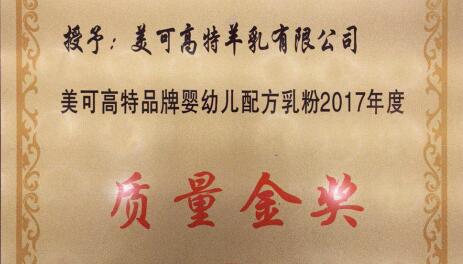 授予：美可高特羊乳有限公司
美可高特品牌婴幼儿配方乳粉2017年度
质量金奖